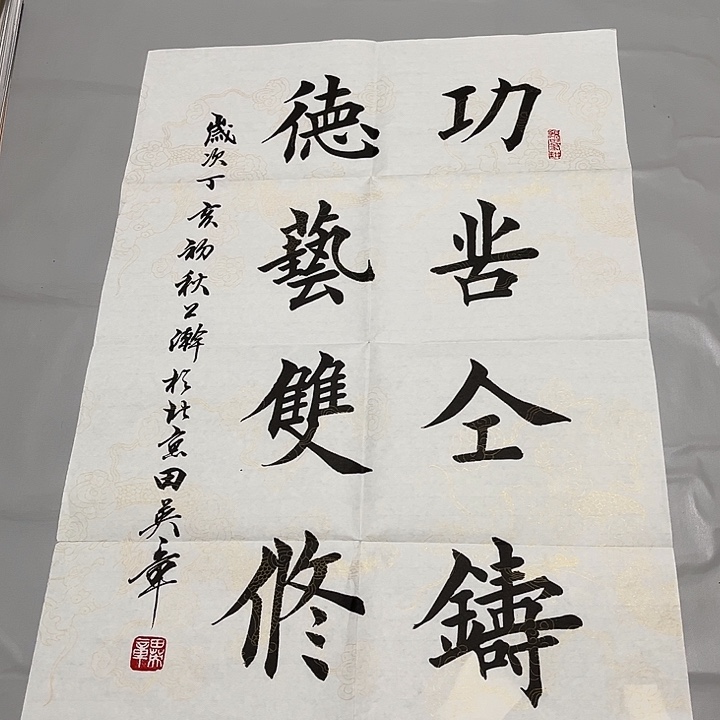 功仝鑄
德藝雙修
歲次丁亥初秋於北京田英章